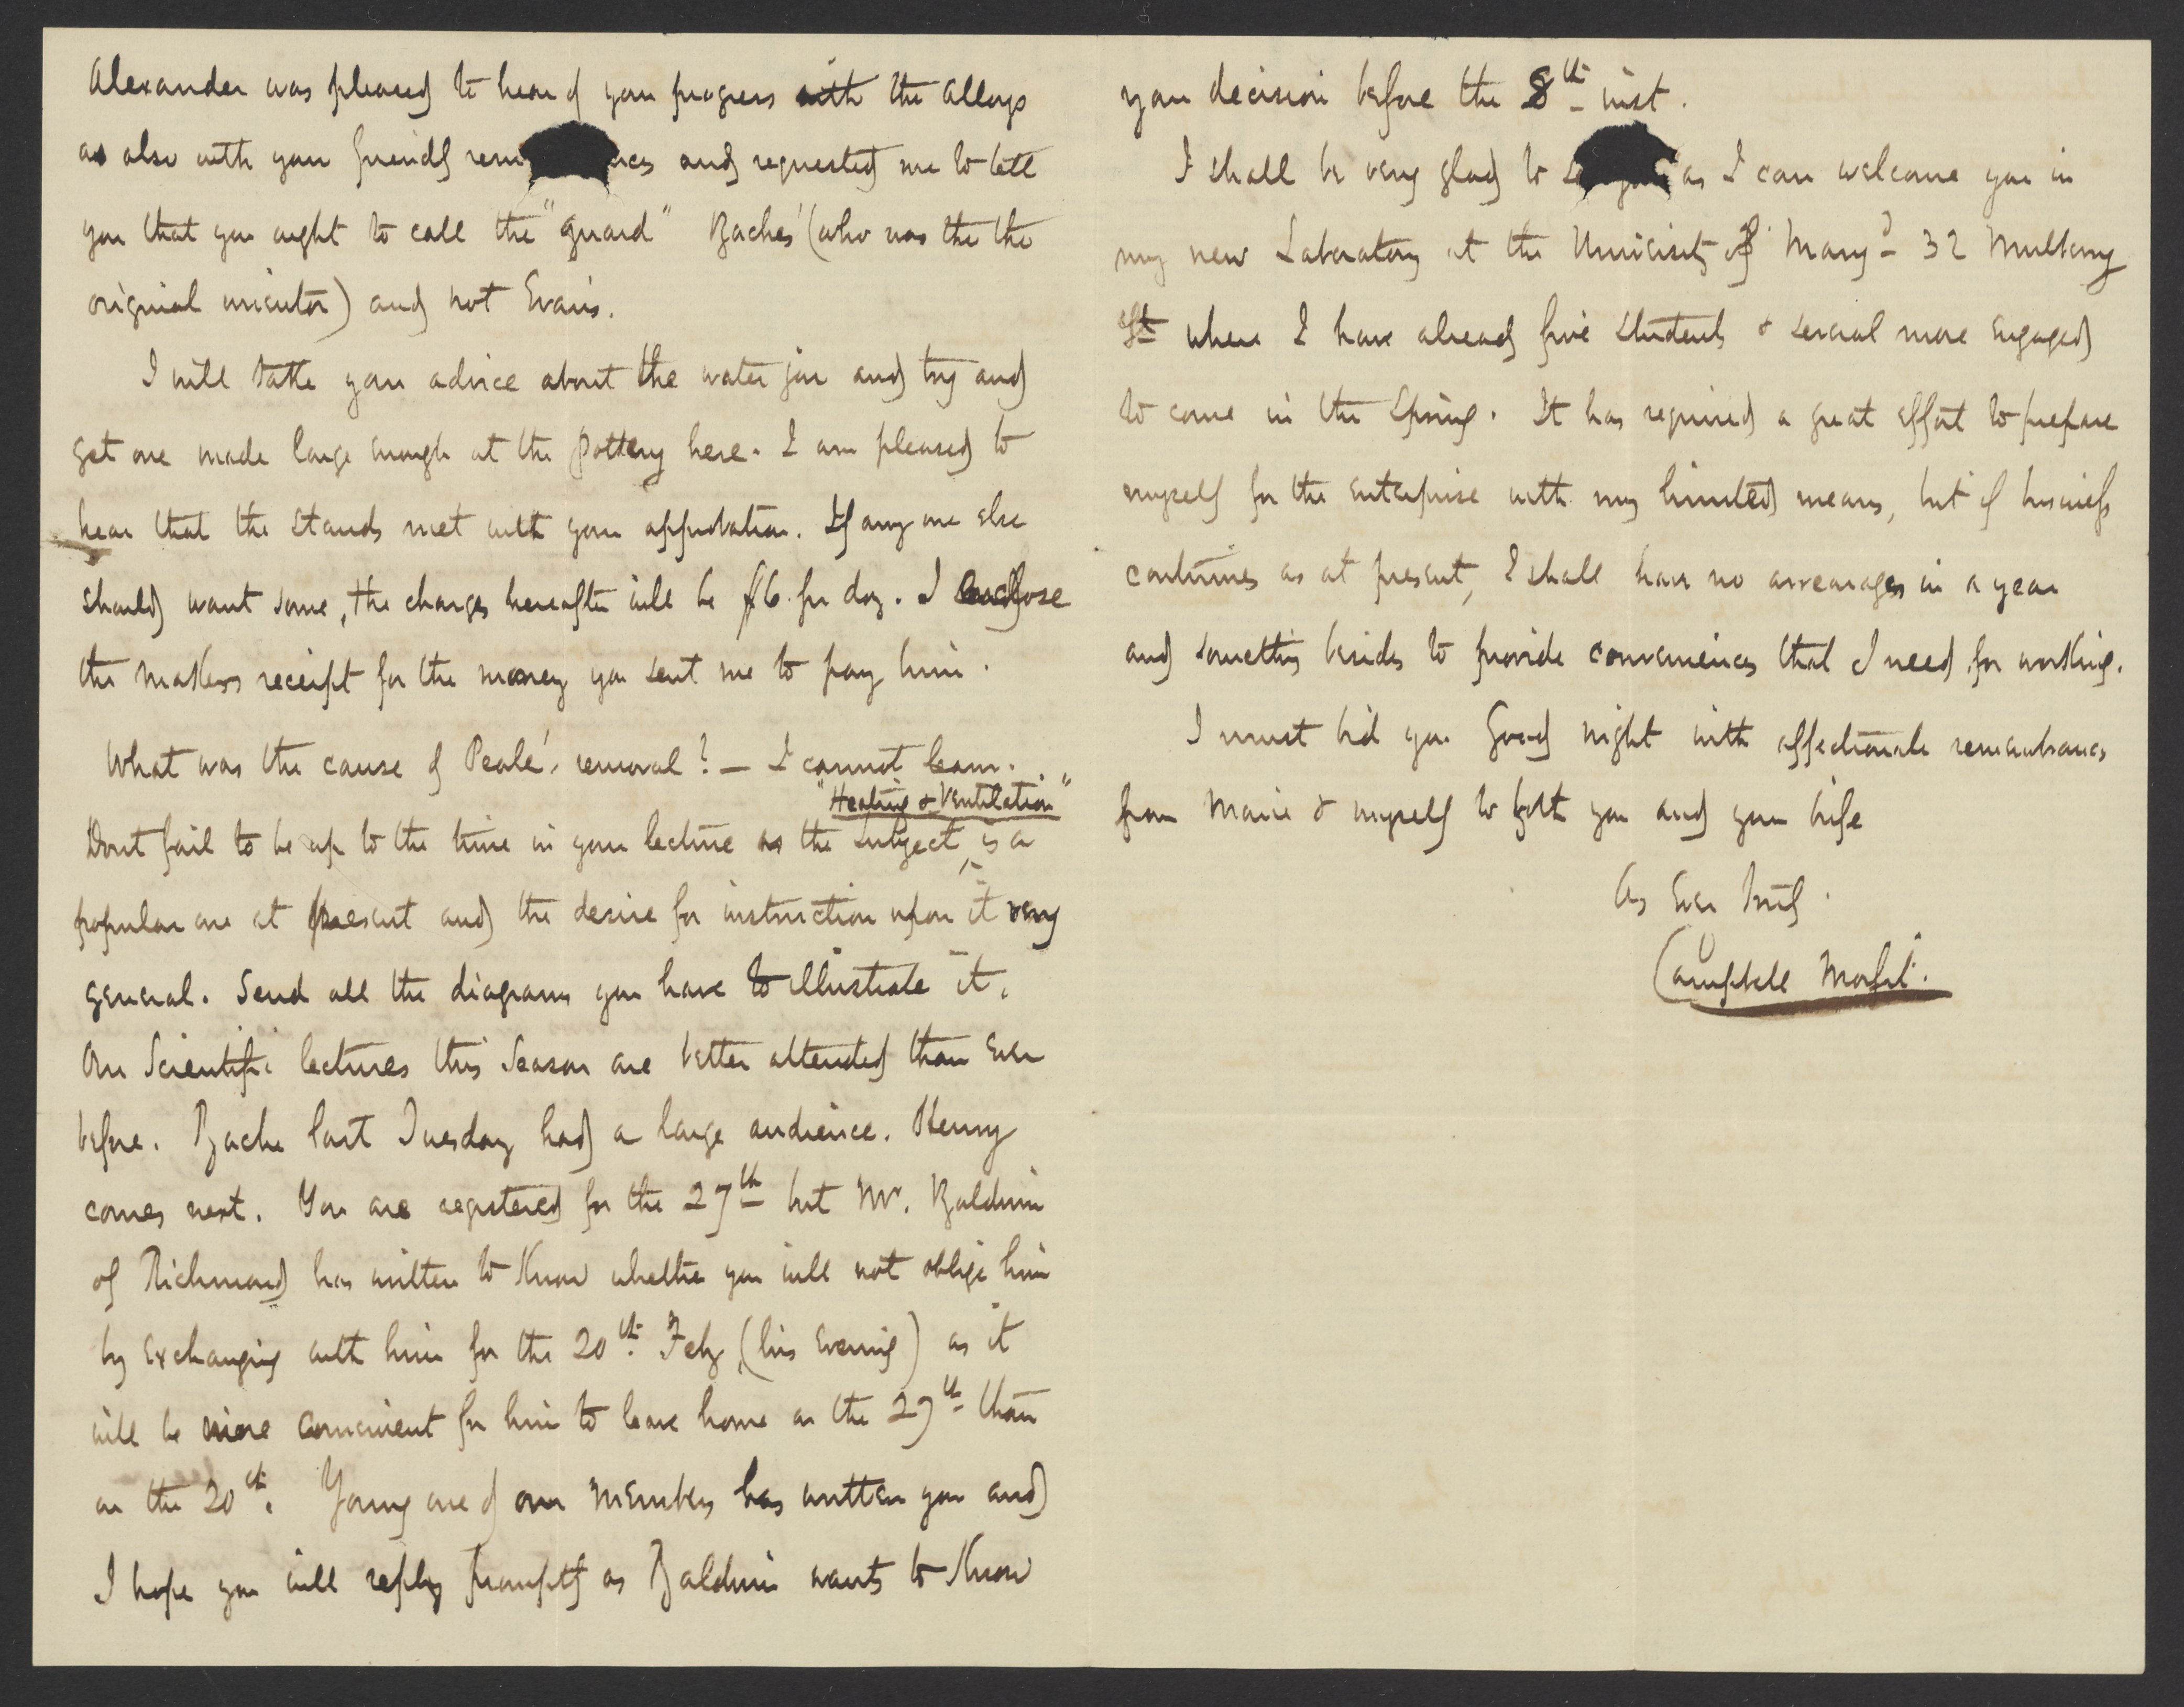 Alexander was pleased to hear of your progress with the alloys
as also with your friendly rem nces and requested me to tell
you that you ought to call the "guard" Baches' (who was the the
original inventor) and not Evans.
I will take your advice about the water jar and try and
get one made large enough at the pottery here. I am pleased to
hear that the stands met with your approbation. If any one else
should want some, the charges hereafter will be $6. per doz. I enclose
the makers receipt for the money you sent me to pay him.
What was the cause of Peale's removal? — I cannot learn.
"Heating & Ventilation"
Dont fail to be up to the time in your lecture as the subject ‸ is a
popular one at present and the desire for instruction upon it very
general. Send all the diagrams you have to illustrate it.
Our Scientific lectures this Season are better attended than Ever
before. Bache last Tuesday had a large audience. Henry
comes next. You are registered for the 27th but Mr. Baldwin
of Richmond has written to Know whether you will not oblige him
by Exchanging with him for the 20th. Feby (his Evening) as it
will be more convenient for him to leave home on the 27th than
on the 20th. Young one of our Members has written you and
I hope you will reply promptly as Baldwin wants to Know
your decision before the 8th inst.
I shall be very glad to as I can welcome you in
my new Laboratory at the University of Maryd 32 Mulberry
St where I have already five Students & several more Engaged
to come in the Spring. It has required a great Effort to prepare
myself for the Enterprise with my limited means, but if business
continues as at present, I shall have no arrearages in a year
and something besides to provide conveniences that I need for working.
I must bid you Good night with affectionate remembrances
from Marie & myself to both you and your wife
As Ever truly.
Campbell Morfit.